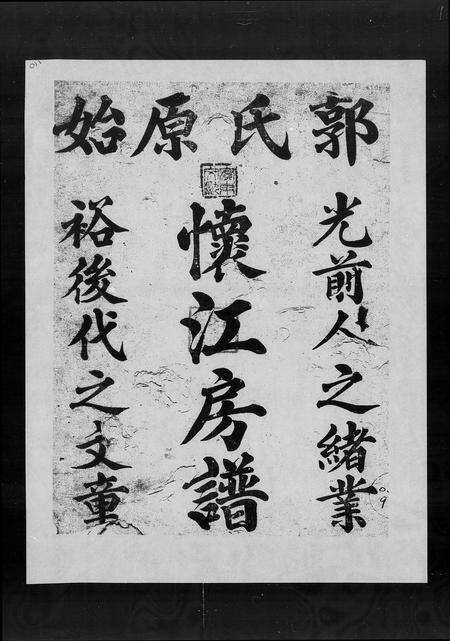 郭氏原始
光前人之緒業
懷江房譜
裕後代之文童
011
0.9